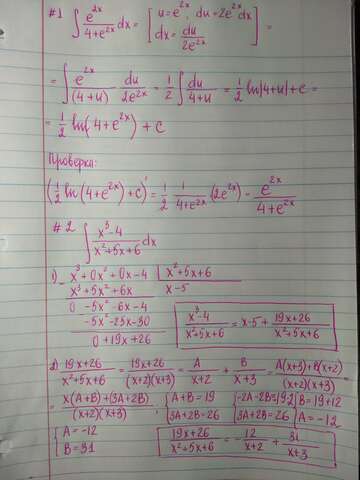 #1 ∫ e^{2x}/(4+e^{2x}) dx = [ u = e^{2x}, du = 2e^{2x} dx
dx = du/(2e^{2x}) ] =
= ∫ e^{2x}/(4+u) du/(2e^{2x}) = 1/2 ∫ du/(4+u) = 1/2 ln|4+u| + c =
= 1/2 ln(4+e^{2x}) + c
Проверка:
(1/2 ln(4+e^{2x}) + c)' = 1/2 1/(4+e^{2x}) (2e^{2x}) = e^{2x}/(4+e^{2x})
#2 ∫ (x^3-4)/(x^2+5x+6) dx
1) - x^3+0x^2+0x-4 | x^2+5x+6
x^3+5x^2+6x x-5
0 -5x^2-6x-4
-5x^2-25x-30
0+19x+26
(x^3-4)/(x^2+5x+6) = x-5 + (19x+26)/(x^2+5x+6)
2) (19x+26)/(x^2+5x+6) = (19x+26)/((x+2)(x+3)) = A/(x+2) + B/(x+3) = (A(x+3)+B(x+2))/((x+2)(x+3)) =
= (x(A+B)+(3A+2B))/((x+2)(x+3)) , { A+B=19 { -2A-2B=19·2 { B=19+12
3A+2B=26 3A+2B=26 A=-12
{ A=-12
B=31
(19x+26)/(x^2+5x+6) = -12/(x+2) + 31/(x+3)